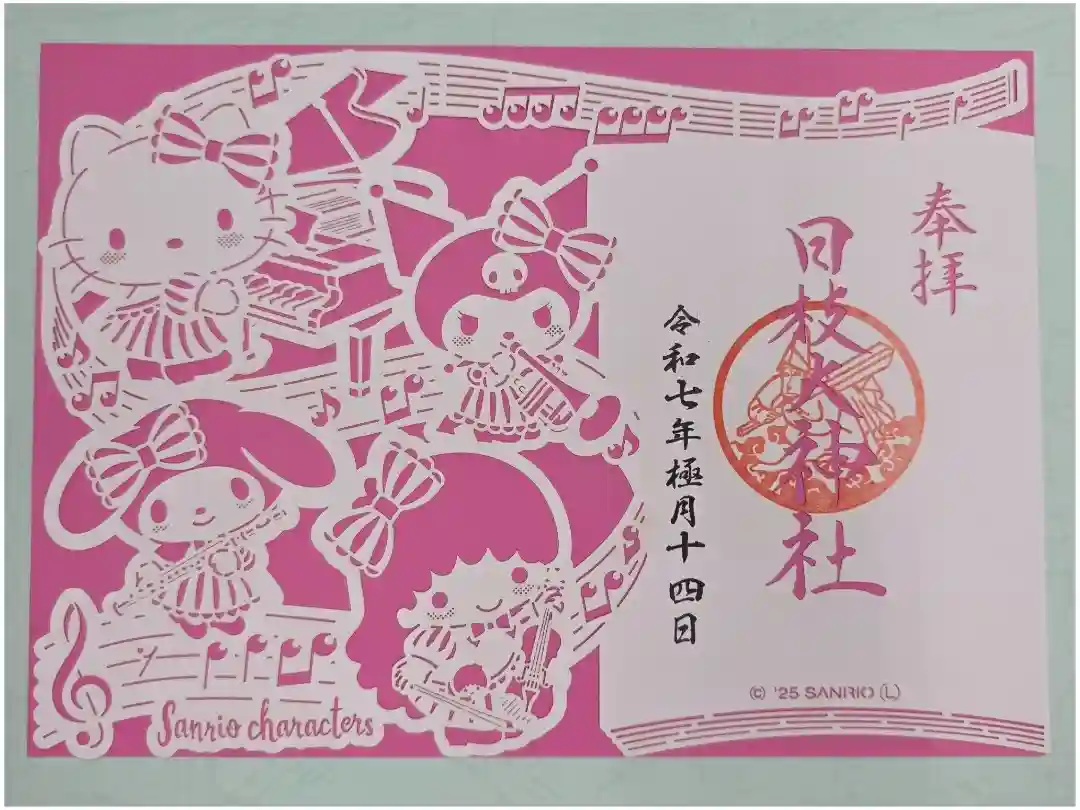 奉拝
日枝大神社
令和七年極月十四日
© '25 SANRIO (L)
Sanrio characters